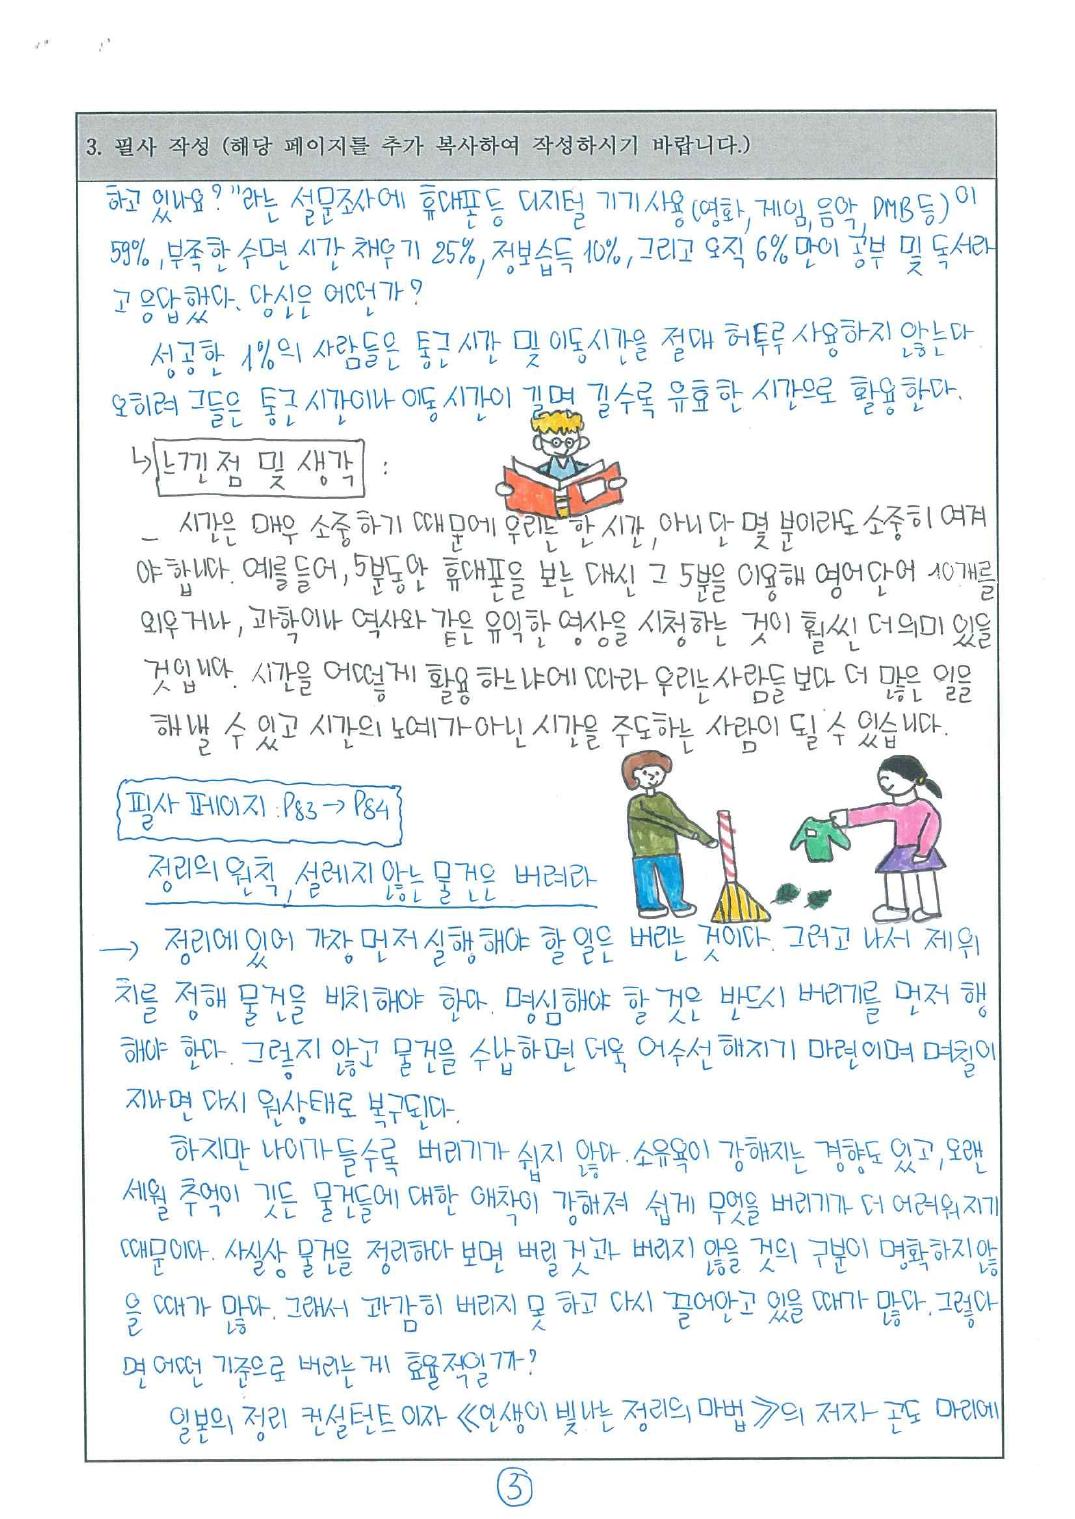 3. 필사 작성 (해당 페이지를 추가 복사하여 작성하시기 바랍니다.)
하고 있나요?"라는 설문조사에 휴대폰 등 디지털 기기사용(영화, 게임, 음악, DMB 등)이
59%, 부족한 수면 시간 채우기 25%, 정보습득 10%, 그리고 오직 6%만이 공부 및 독서라
고 응답했다. 당신은 어떤가?
성공한 1%의 사람들은 통근 시간 및 이동시간을 절대 허투루 사용하지 않는다
오히려 그들은 통근 시간이나 이동 시간이 길면 길수록 유효한 시간으로 활용한다.
↳ 느낀점 및 생각 :
_ 시간은 매우 소중하기 때문에 우리는 한 시간, 아니 단 몇 분이라도 소중히 여겨
야 합니다. 예를들어, 5분동안 휴대폰을 보는 대신 그 5분을 이용해 영어단어 10개를
외우거나, 과학이나 역사와 같은 유익한 영상을 시청하는 것이 훨씬 더 의미 있을
것입니다. 시간을 어떻게 활용하느냐에 따라 우리는 사람들보다 더 많은 일을
해낼 수 있고 시간의 노예가 아닌 시간을 주도하는 사람이 될 수 있습니다.
필사 페이지 : P83 → P84
정리의 원칙, 설레지 않는 물건은 버려라
→ 정리에 있어 가장 먼저 실행해야 할 일은 버리는 것이다. 그러고 나서 제 위
치를 정해 물건을 비치해야 한다. 명심해야 할 것은 반드시 버리기를 먼저 행
해야 한다. 그렇지 않고 물건을 수납하면 더욱 어수선해지기 마련이며 며칠이
지나면 다시 원상태로 복구된다.
하지만 나이가 들수록 버리기가 쉽지 않다. 소유욕이 강해지는 경향도 있고, 오랜
세월 추억이 깃든 물건들에 대한 애착이 강해져 쉽게 무엇을 버리기가 더 어려워지기
때문이다. 사실상 물건을 정리하다 보면 버릴 것과 버리지 않을 것의 구분이 명확하지 않
을 때가 많다. 그래서 과감히 버리지 못 하고 다시 끌어안고 있을 때가 많다. 그렇다
면 어떤 기준으로 버리는 게 효율적일까?
일본의 정리 컨설턴트이자 ≪인생이 빛나는 정리의 마법≫의 저자 곤도 마리에
3